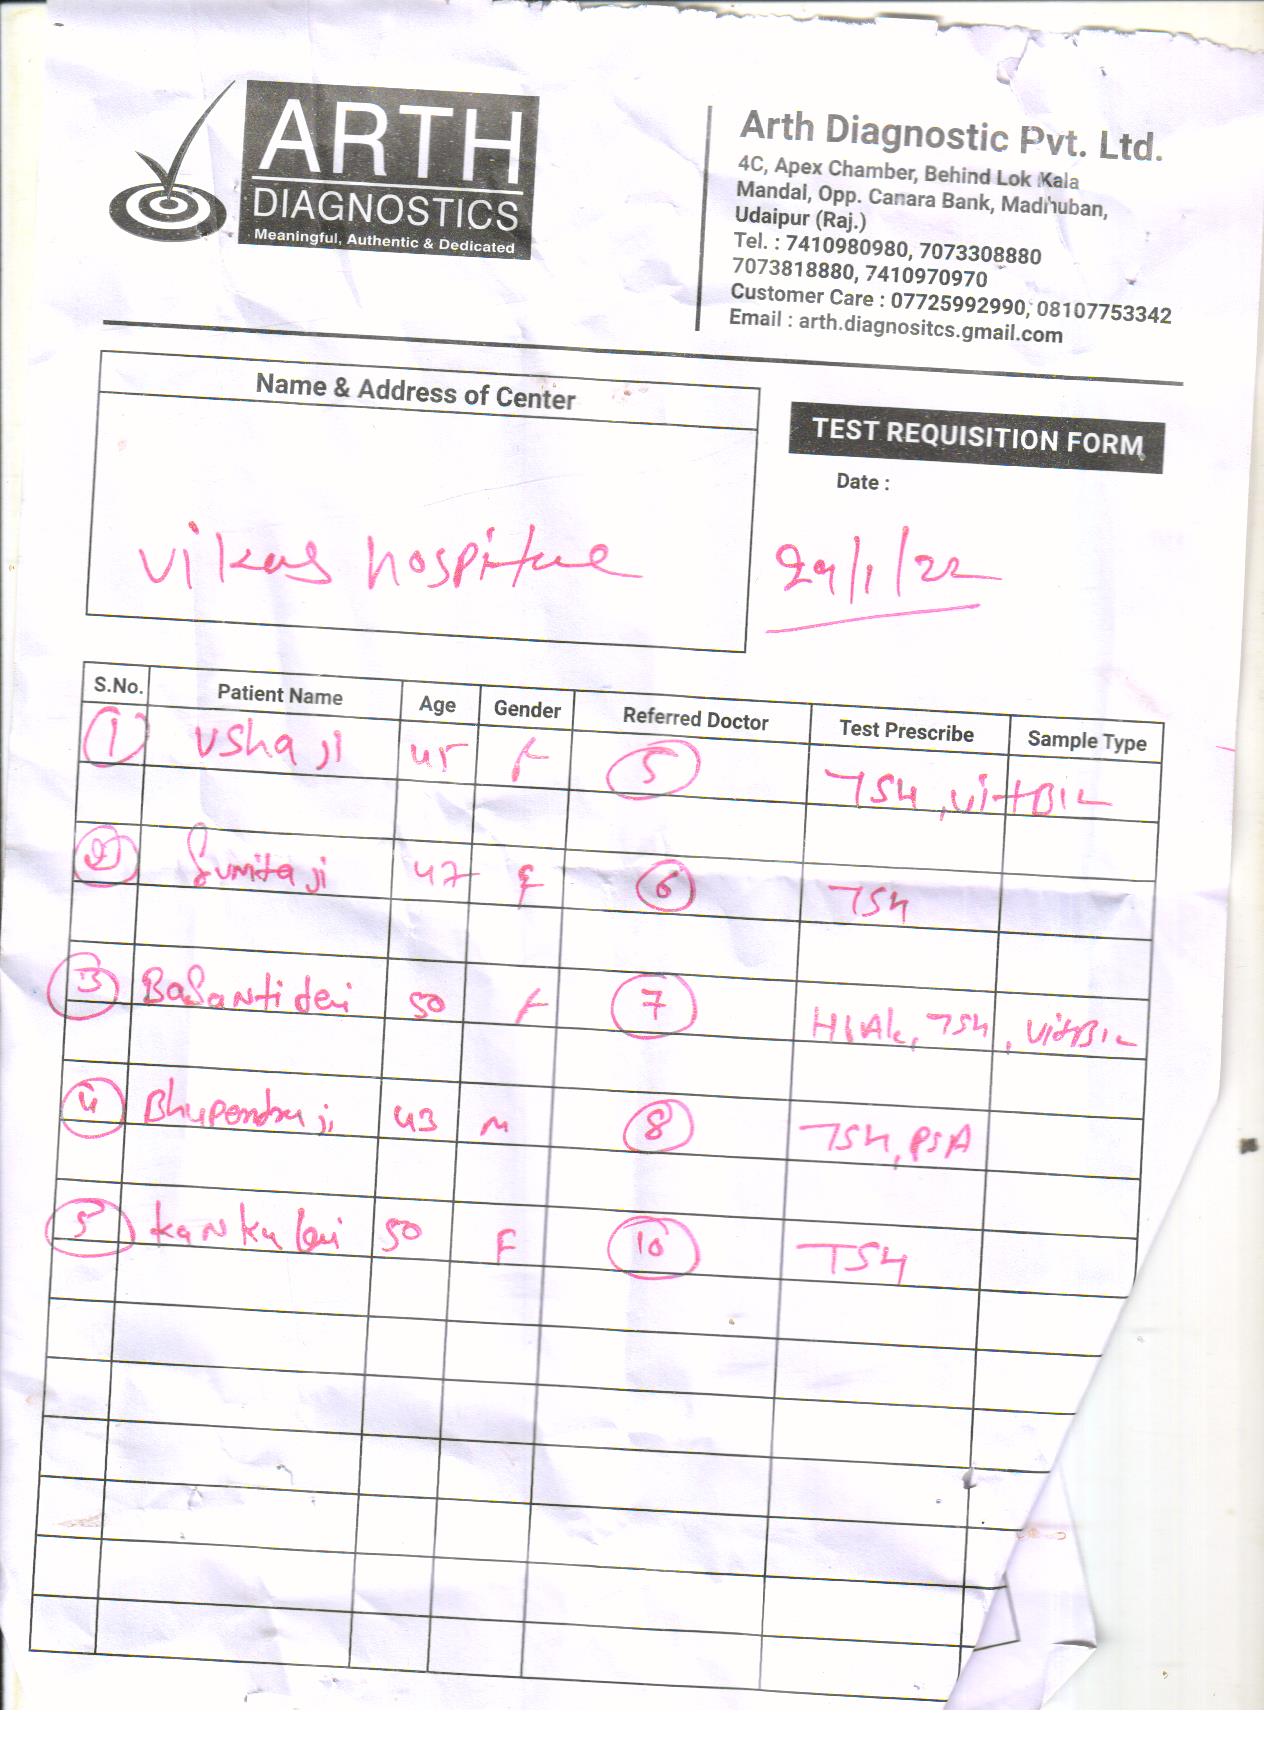 ARTH
DIAGNOSTICS
Meaningful, Authentic & Dedicated
Arth Diagnostic Pvt. Ltd.
4C, Apex Chamber, Behind Lok Kala
Mandal, Opp. Canara Bank, Madhuban,
Udaipur (Raj.)
Tel. : 7410980980, 7073308880
7073818880, 7410970970
Customer Care : 07725992990, 08107753342
Email : arth.diagnositcs.gmail.com
Name & Address of Center
Vikas hospital
TEST REQUISITION FORM
Date :
29/1/22
S.No. Patient Name Age Gender Referred Doctor Test Prescribe Sample Type
1 Usha ji 45 F 5 TSH, Vit B12
2 Sunita ji 47 F 6 TSH
3 Basanti devi 50 F 7 H1A1c, TSH, Vit B12
4 Bhupendra ji 43 M 8 TSH, PSA
5 Kanku 50 F 10 TSH